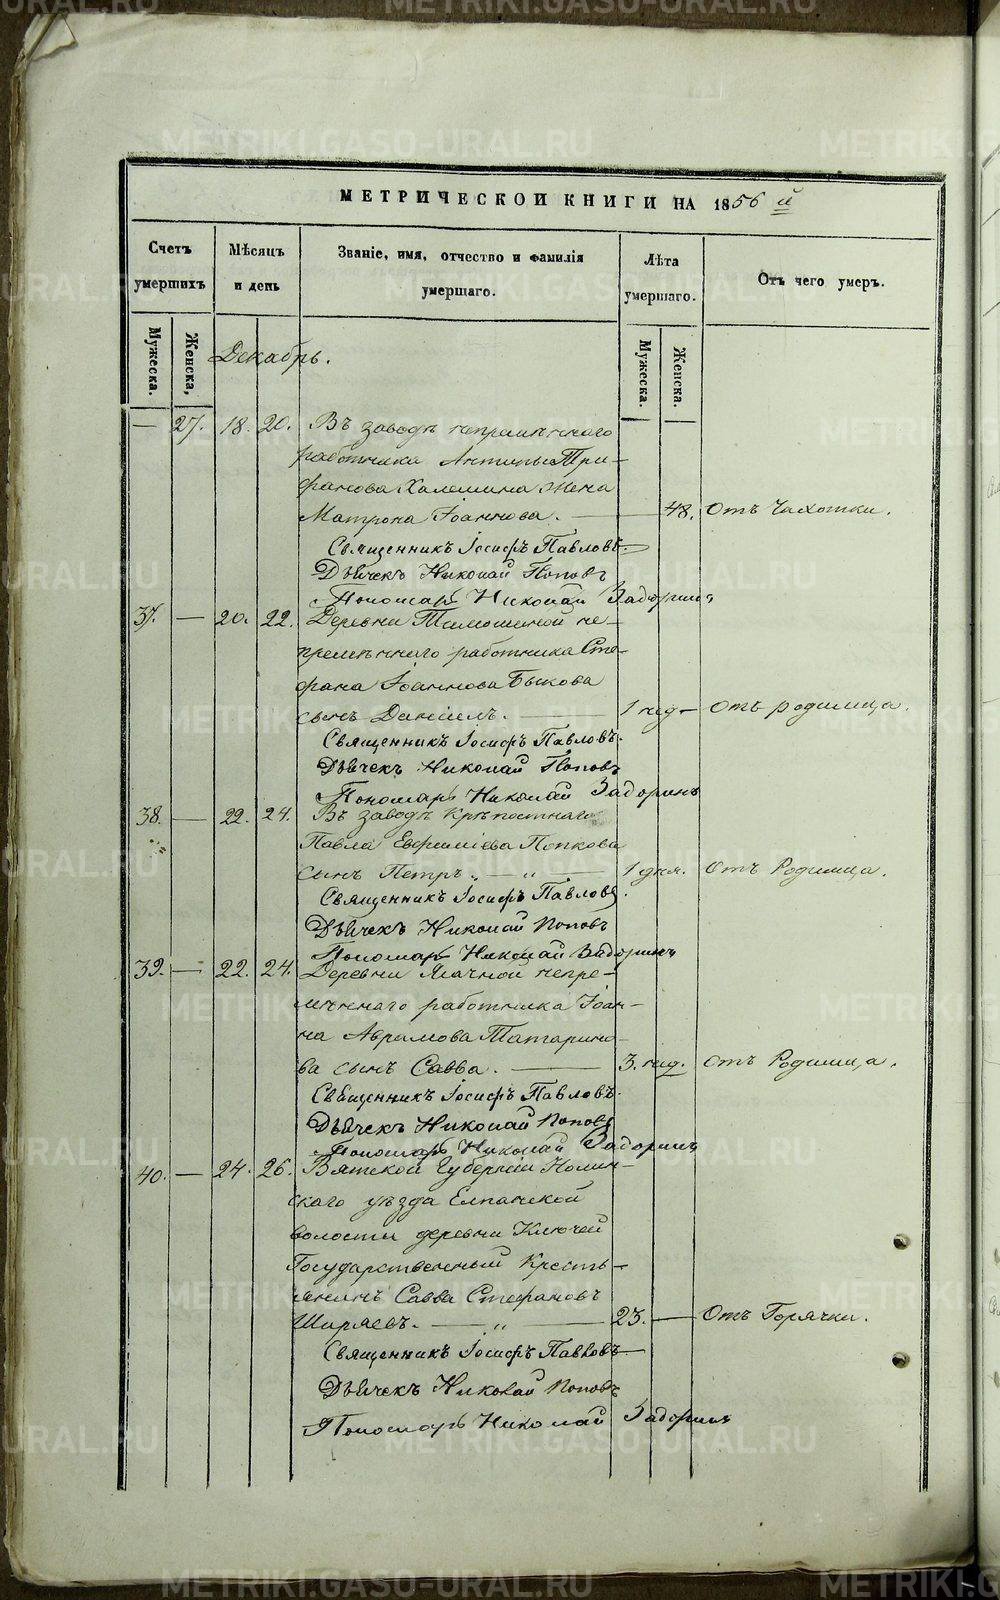 МЕТРИЧЕСКОЙ КНИГИ НА 1856 й
Счетъ умершихъ
Мѣсяцъ и день
Званіе, имя, отчество и фамилія умершаго.
Лѣта умершаго.
Отъ чего умеръ.
Мужеска.
Женска,
Мужеска.
Женска.
Декабрь.
— 27. 18. 20. Въ заводѣ непремѣннаго
работника Антипы Три-
фанова Халемина жена
Матрона Іоаннова. — 48. Отъ Чахотки.
Священникъ Іосифъ Павловъ
Дьячекъ Николай Поповъ
Пономарь Николай Задоринъ
37. — 20. 22. Деревни Тимошиной не-
премѣннаго работника Сте-
фана Іоаннова Быкова
сынъ Даніилъ. — 1 нед — Отъ родимца.
Священникъ Іосифъ Павловъ.
Дьячекъ Николай Поповъ
Пономарь Николай Задоринъ
38. — 22. 24. Въ заводѣ Крѣпостнаго
Павла Евфиміева Попкова
сынъ Петръ. — „ — 1 дня. Отъ Родимца.
Священникъ Іосифъ Павловъ.
Дьячекъ Николай Поповъ
Пономарь Николай Задоринъ
39. — 22. 24. Деревни Ялачной непре-
мѣннаго работника Іоан-
на Аврамова Татарино-
ва сынъ Савва. — 3. нед. отъ Родимца.
Священникъ Іосифъ Павловъ.
Дьячекъ Николай Поповъ
Пономарь Николай Задоринъ
40. — 24. 26. Вятской Губерніи Нолин-
скаго уѣзда
волости деревни Ключей
Государственный Кресть-
янинъ Савва Стефановъ
Ширяевъ. — „ — 23. — Отъ Горячки.
Священникъ Іосифъ Павловъ
Дьячекъ Николай Поповъ
Пономарь Николай Задоринъ
METRIKI.GASO-URAL.RU